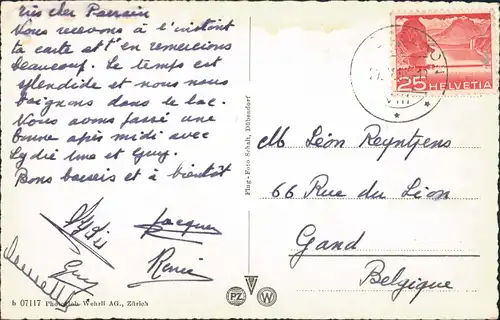 très cher Parrain
Nous recevons à l'instant
ta carte et t'en remercions
beaucoup. Le temps est
splendide et nous nous
baignons dans le lac.
Nous avons passé une
bonne après midi avec
Lydie et Guy.
Bons baisers et à bientôt
Lydie Jacques
Guy Renée
b 07117 Photoglob-Wehrli AG., Zürich
Flug-Foto Schalt, Dübendorf
PZ W
25 HELVETIA
VIII
M Léon Reyntjens
66 Rue du Lion
Gand
Belgique